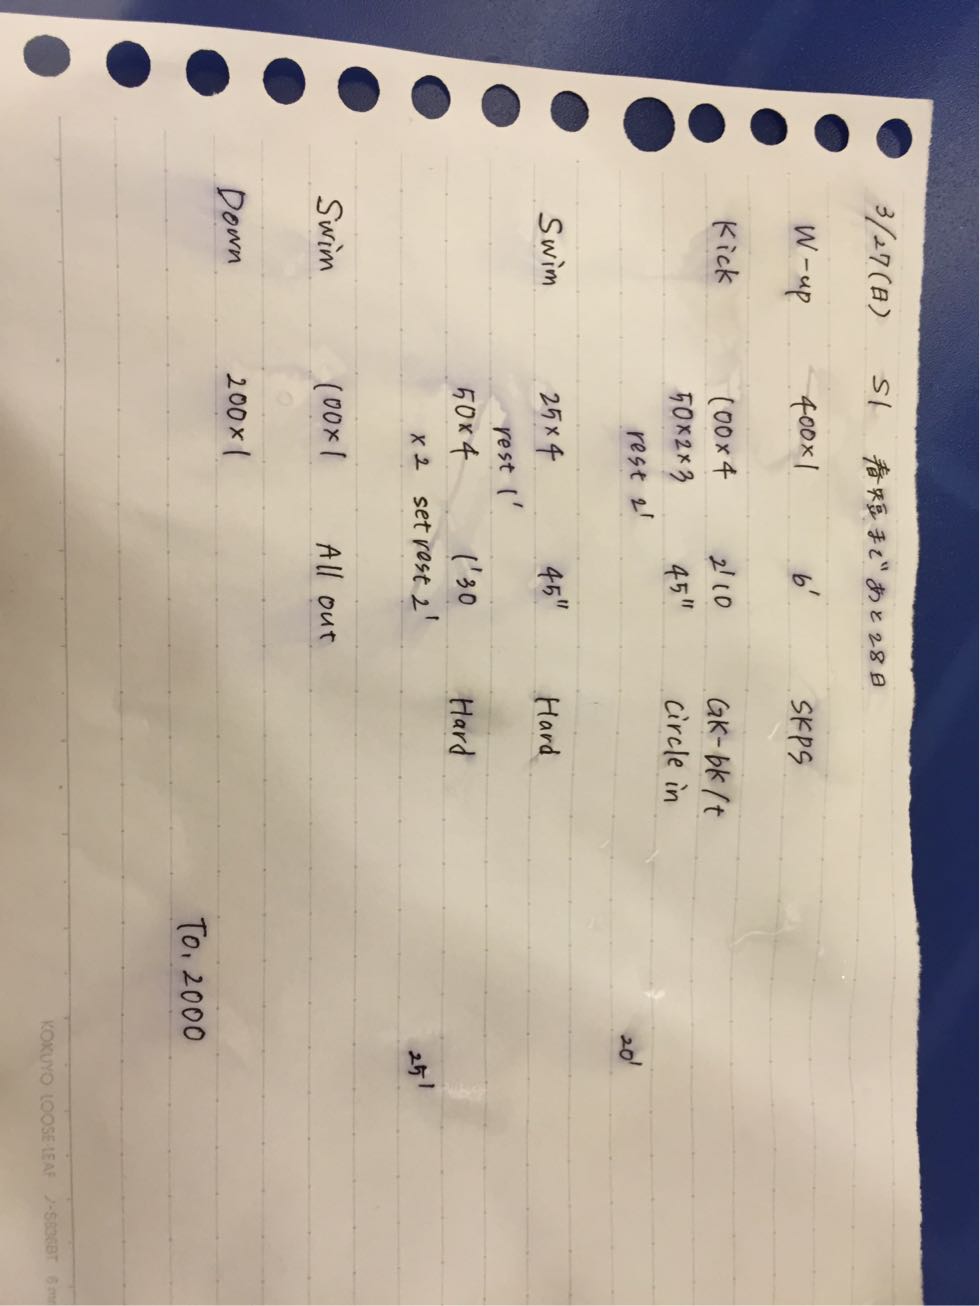 3/27(日) S1 春短まであと28日
W-up 400×1 6' SKPS
Kick 100×4 2'10 GK-bk/t
50×2×3 45" circle in
rest 2' 20'
Swim 25×4 45" Hard
rest 1'
50×4 1'30 Hard
×2 set rest 2' 25'
Swim 100×1 All out
Down 200×1
To, 2000
KOKUYO LOOSE-LEAF ノ-S836BT 6 mm